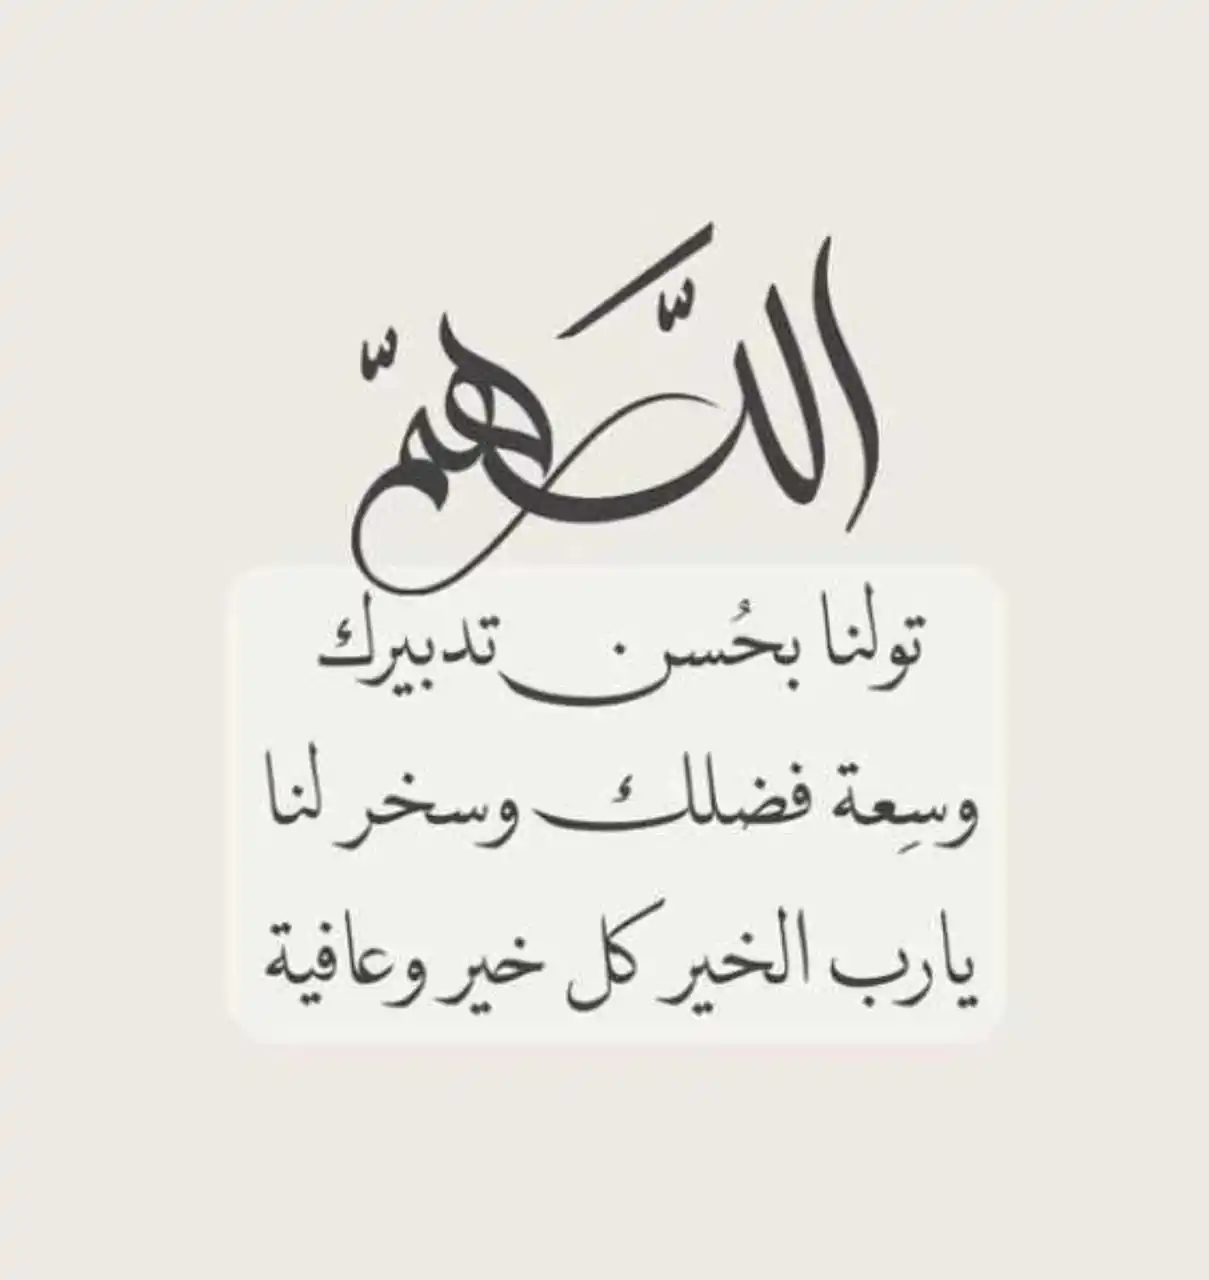 اللَّهمّ
تولنا بحُسن تدبيرك
وسِعة فضلك وسخر لنا
يارب الخير كل خير وعافية